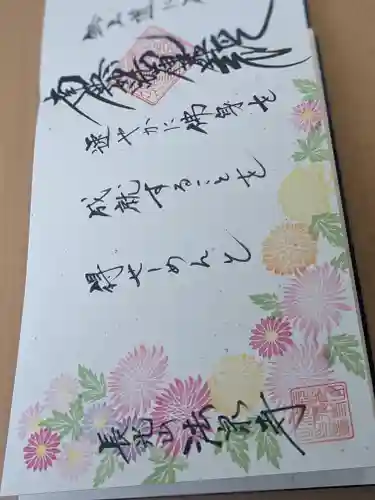 無上道に入
南無妙法蓮華経
速やかに佛身を
成就することを
得せしめんと
法泉寺